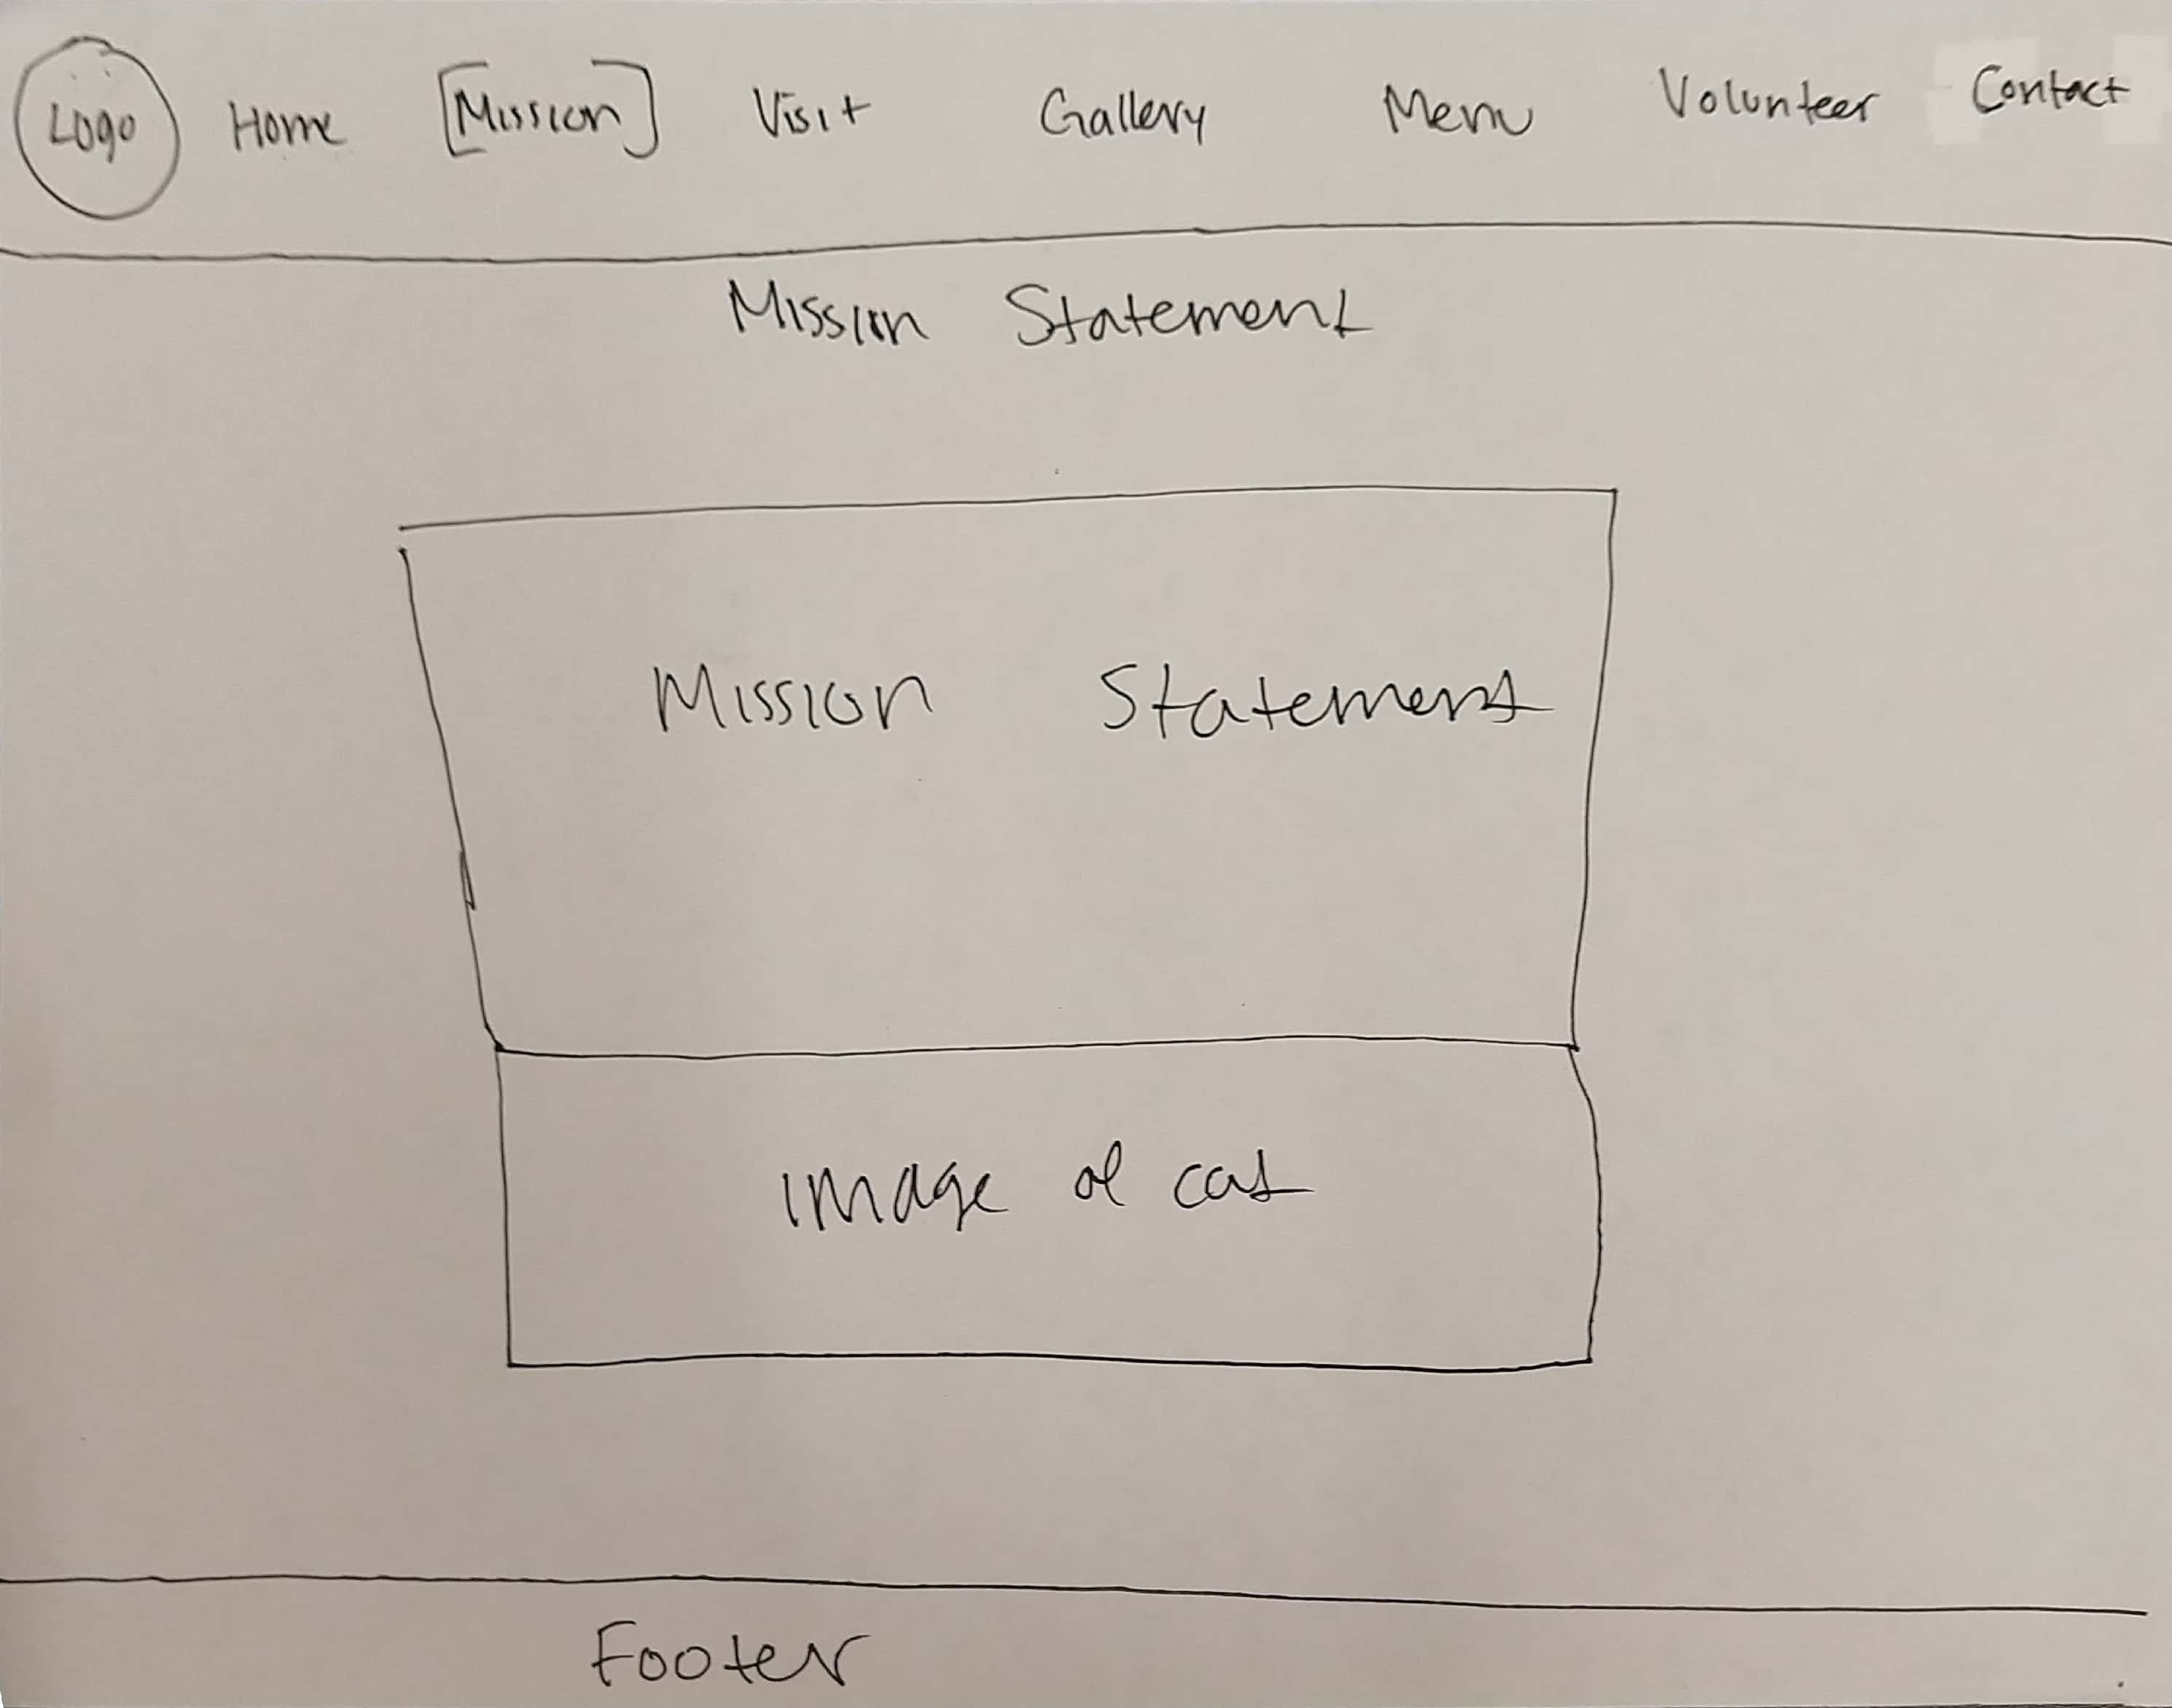 Logo Home [Mission] Visit Gallery Menu Volunteer Contact
Mission Statement
Mission Statement
image of cat
Footer